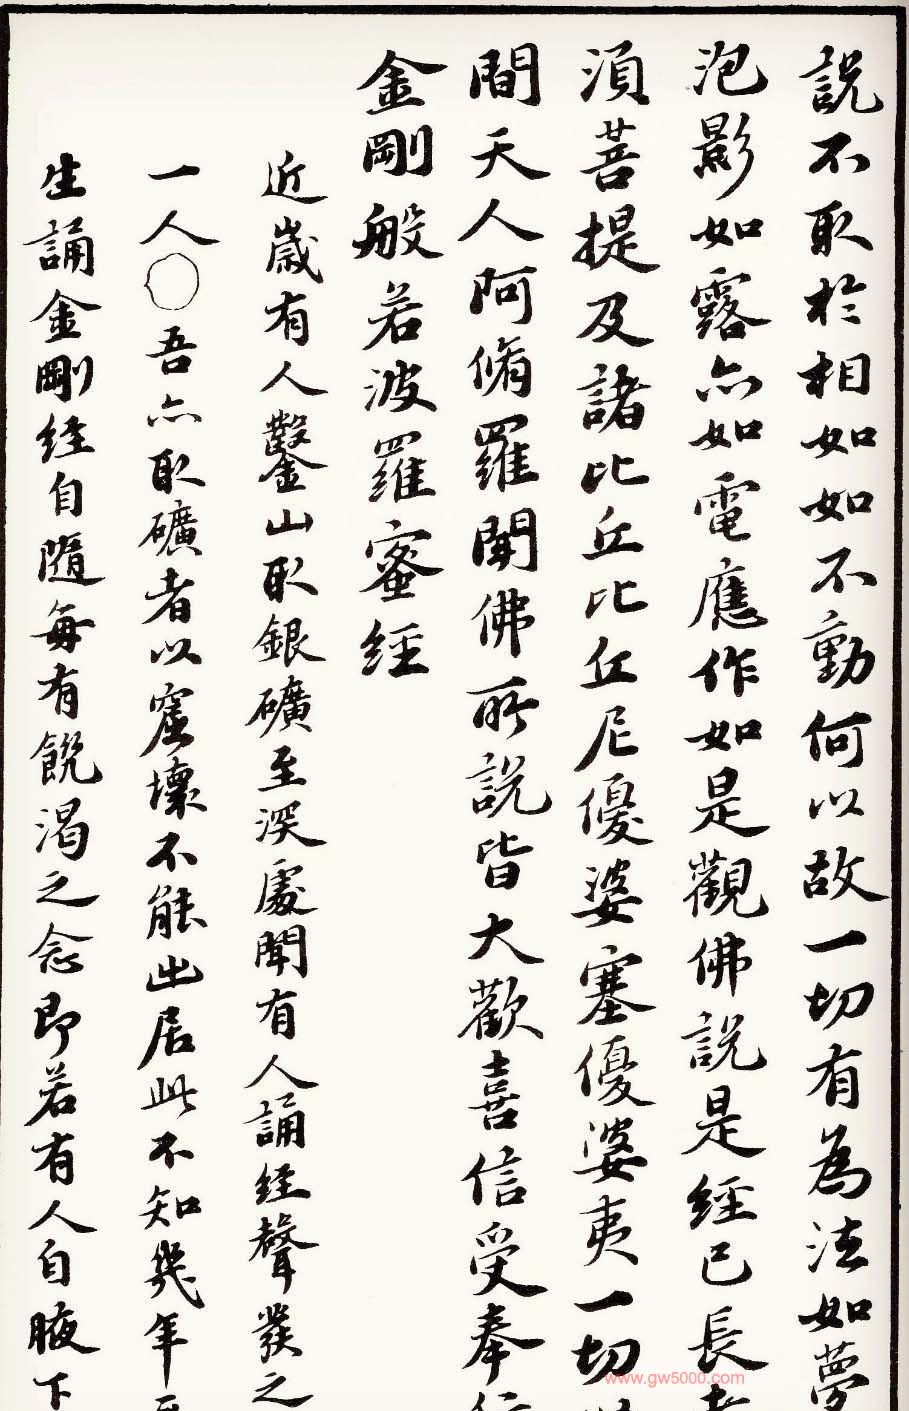 說不取於相如如不動何以故一切有為法如夢
泡影如露亦如電應作如是觀佛說是經已長
須菩提及諸比丘比丘尼優婆塞優婆夷一切
間天人阿脩羅聞佛所說皆大歡喜信受奉
金剛般若波羅蜜經
近歲有人鑿山取銀礦至深處聞有人誦經聲發之
一人○吾亦取礦者以窟壞不能出居此不知幾年
生誦金剛經自隨每有飢渴之念即若有人自腋下
www.gw5000.com